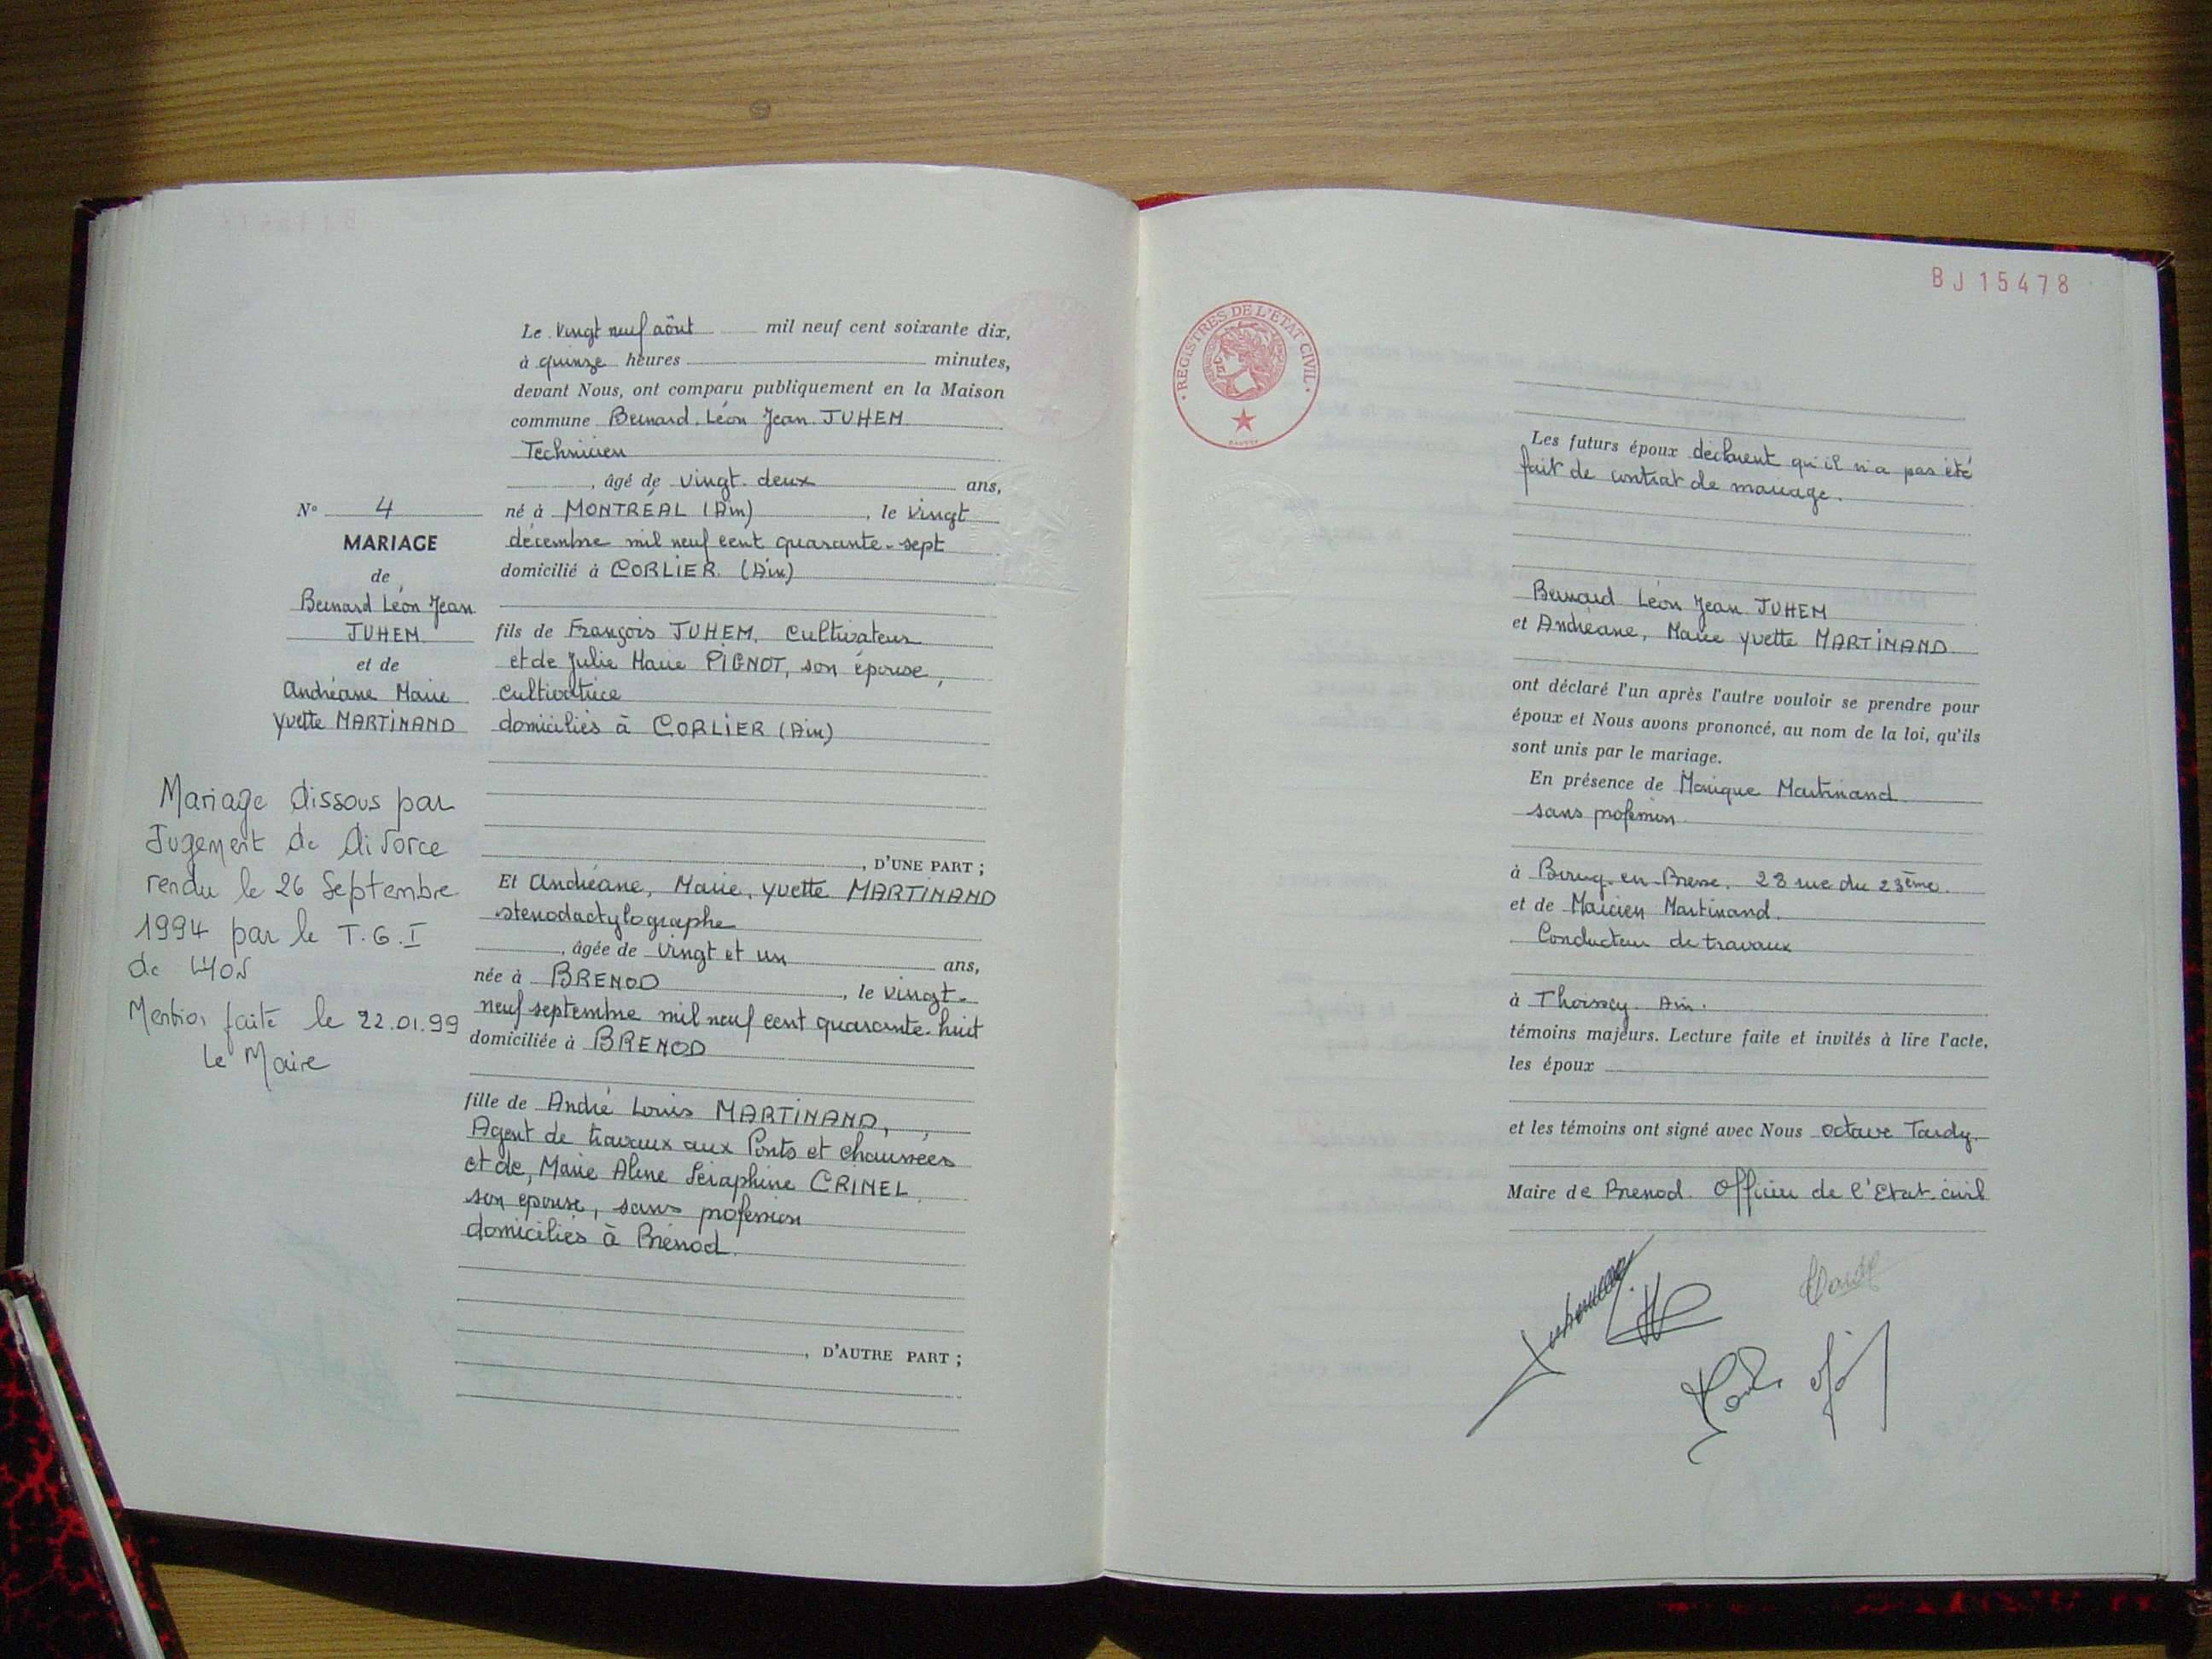 Le vingt neuf août mil neuf cent soixante dix,
à quinze heures minutes,
devant Nous, ont comparu publiquement en la Maison
commune Bernard Léon Jean JUHEM
Technicien
, âgé de vingt-deux ans,
né à MONTREAL (Ain), le vingt
décembre mil neuf cent quarante-sept
domicilié à CORLIER (Ain)
fils de François JUHEM, Cultivateur
et de Julie Marie PIGNOT, son épouse,
cultivatrice
domiciliés à CORLIER (Ain)
, D'UNE PART ;
Et Andréane, Marie, Yvette MARTINAND
stenodactylographe
, âgée de vingt et un ans,
née à BRENOD, le vingt-
neuf septembre mil neuf cent quarante-huit
domiciliée à BRENOD
fille de André Louis MARTINAND,
Agent de travaux aux Ponts et chaussées
et de, Marie Aline Séraphine CRINEL
son épouse, sans profession
domiciliés à Brénod.
, D'AUTRE PART ;
N° 4
MARIAGE
de
Bernard Léon Jean
JUHEM
et de
Andréane Marie
Yvette MARTINAND
Mariage dissous par
Jugement de divorce
rendu le 26 Septembre
1994 par le T.G.I
de LYON
Mention faite le 22.01.99
Le Maire
BJ 15478
REGISTRES DE L'ETAT CIVIL
Les futurs époux déclarent qu'il n'a pas été
fait de contrat de mariage.
Bernard Léon Jean JUHEM
et Andréane, Marie Yvette MARTINAND
ont déclaré l'un après l'autre vouloir se prendre pour
époux et Nous avons prononcé, au nom de la loi, qu'ils
sont unis par le mariage.
En présence de Monique Martinand
sans profession
à Bourg-en-Bresse, 23 rue du 23ème
et de Marcien Martinand
Conducteur de travaux
à Thoissey. Ain.
témoins majeurs. Lecture faite et invités à lire l'acte,
les époux
et les témoins ont signé avec Nous Octave Tardy
Maire de Brenod. Officier de l'Etat civil